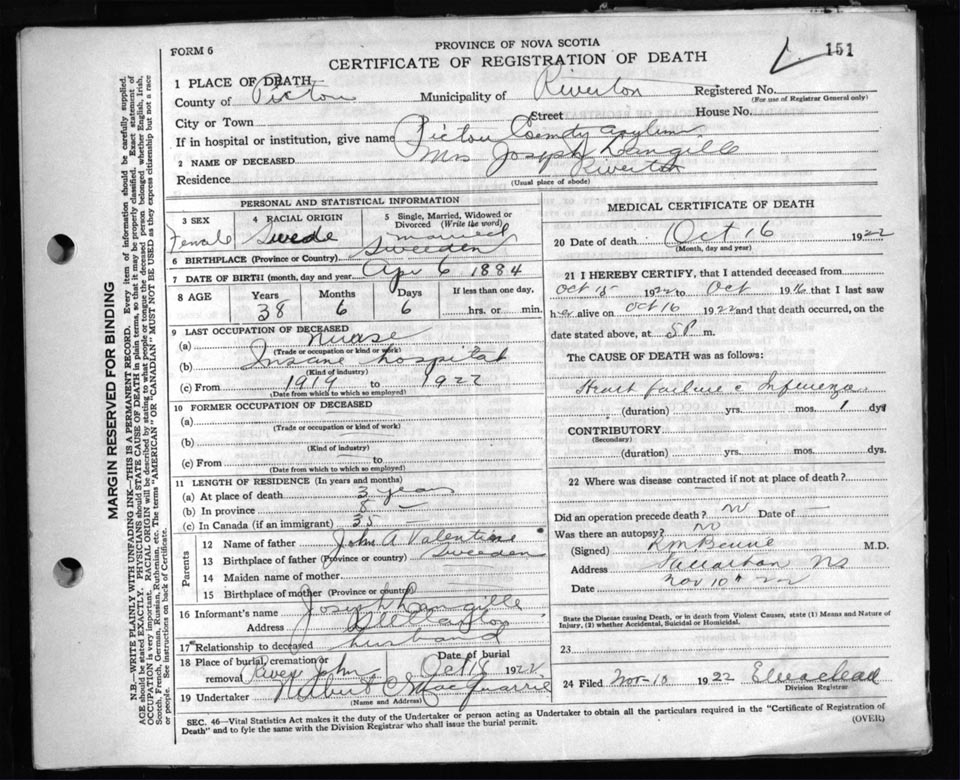 FORM 6
PROVINCE OF NOVA SCOTIA
CERTIFICATE OF REGISTRATION OF DEATH
151
1 PLACE OF DEATH
County of Pictou Municipality of Riverton Registered No.
(For use of Registrar General only)
City or Town Street House No.
If in hospital or institution, give name Pictou County asylum
2 NAME OF DECEASED Mrs Joseph Langille
Residence Riverton
(Usual place of abode)
PERSONAL AND STATISTICAL INFORMATION
3 SEX Female
4 RACIAL ORIGIN Swede
5 Single, Married, Widowed or Divorced (Write the word) married
6 BIRTHPLACE (Province or Country) Sweeden
7 DATE OF BIRTH (month, day and year) Apr 6 1884
8 AGE Years 38 Months 6 Days 6 If less than one day, hrs. or min.
9 LAST OCCUPATION OF DECEASED
(a) nurse
(Trade or occupation or kind of work)
(b) Insane hospital
(Kind of industry)
(c) From 1919 to 1922
(Date from which to which so employed)
10 FORMER OCCUPATION OF DECEASED
(a)
(Trade or occupation or kind of work)
(b)
(Kind of industry)
(c) From to
(Date from which to which so employed)
11 LENGTH OF RESIDENCE (In years and months)
(a) At place of death 3 years
(b) In province 8 —
(c) In Canada (if an immigrant) 35 —
Parents
12 Name of father John A Valentine
13 Birthplace of father (Province or country) Sweeden
14 Maiden name of mother
15 Birthplace of mother (Province or country)
16 Informant's name Joseph Langille
Address
17 Relationship to deceased husband
18 Place of burial, cremation or removal River John Date of burial Oct 18 1922
19 Undertaker MacQuarrie
(Name and Address)
MEDICAL CERTIFICATE OF DEATH
20 Date of death Oct 16 1922
(Month, day and year)
21 I HEREBY CERTIFY, that I attended deceased from
Oct 15 1922 to Oct 19 16 that I last saw
her alive on Oct 16 1922 and that death occurred, on the
date stated above, at 5P m.
The CAUSE OF DEATH was as follows:
Heart failure c Influenza
(duration) yrs. mos. 1 dys
CONTRIBUTORY
(Secondary)
(duration) yrs. mos. dys.
22 Where was disease contracted if not at place of death?
—
Did an operation precede death? no Date of —
Was there an autopsy? no
(Signed) M.D.
Address NS
Date Nov 10th 22
State the Disease causing Death, or in death from Violent Causes, state (1) Means and Nature of Injury, (2) whether Accidental, Suicidal or Homicidal.
23
24 Filed Nov-10 1922
Division Registrar
SEC. 46—Vital Statistics Act makes it the duty of the Undertaker or person acting as Undertaker to obtain all the particulars required in the "Certificate of Registration of
Death" and to fyle the same with the Division Registrar who shall issue the burial permit.
(OVER)
MARGIN RESERVED FOR BINDING
N.B.—WRITE PLAINLY WITH UNFADING INK—THIS IS A PERMANENT RECORD. Every item of information should be carefully supplied.
AGE should be stated EXACTLY. PHYSICIANS should STATE CAUSE OF DEATH in plain terms, so that it may be properly classified. Exact statement of
OCCUPATION is very important. RACIAL ORIGIN will be described by stating to what people or tongue the deceased person belonged whether English, Irish,
Scotch, French, German, Russian, Ruthenian, etc. The terms "AMERICAN" or "CANADIAN" MUST NOT BE USED as they express citizenship but not a race
or people. See instructions on back of Certificate.